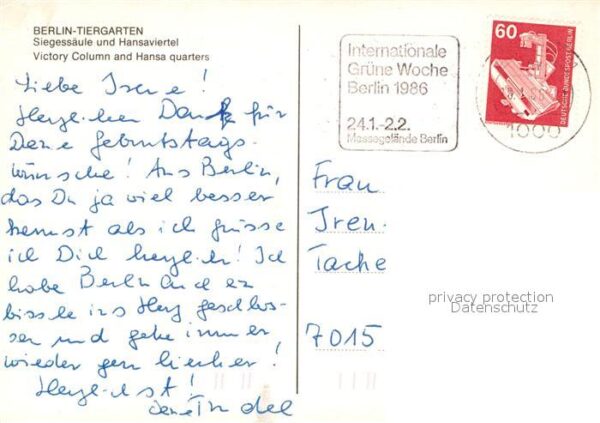 BERLIN-TIERGARTEN
Siegessäule und Hansaviertel
Victory Column and Hansa quarters
Liebe Irene!
Herzlichen Dank für
Deine Geburtstags-
wünsche! Aus Berlin,
das Du ja viel besser
kennst als ich grüsse
ich Dich herzlich! Ich
habe Berlin auch en
bissle ins Herz geschlos-
sen und gehe immer
wieder gern hierher!
Herzlichst!
Internationale
Grüne Woche
Berlin 1986
24.1.-2.2.
Messegelände Berlin
60
DEUTSCHE BUNDESPOST BERLIN
1000
Frau
Iren
Tache
7015
privacy protection
Datenschutz